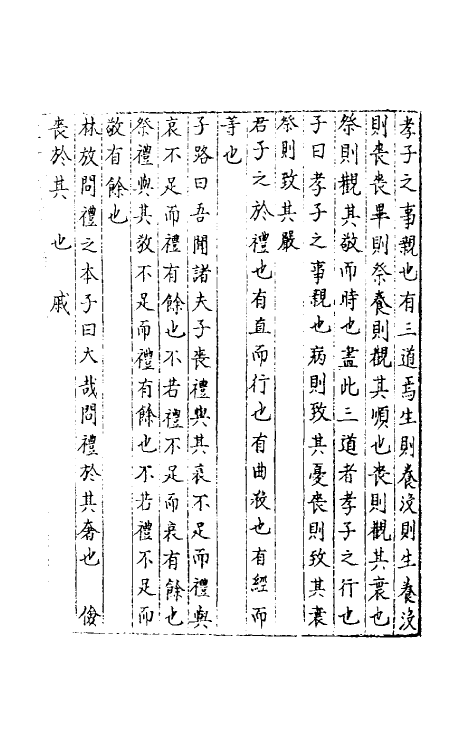 孝子之事親也有三道焉生則養沒則生養沒
則喪喪畢則祭養則觀其順也喪則觀其哀也
祭則觀其敬而時也盡此三道者孝子之行也
子曰孝子之事親也病則致其憂喪則致其哀
祭則致其嚴
君子之於禮也有直而行也有曲殺也有經而
等也
子路曰吾聞諸夫子喪禮與其哀不足而禮與
哀不足而禮有餘也不若禮不足而哀有餘也
祭禮與其敬不足而禮有餘也不若禮不足而
敬有餘也
林放問禮之本子曰大哉問禮於其奢也 儉
喪於其 也 戚